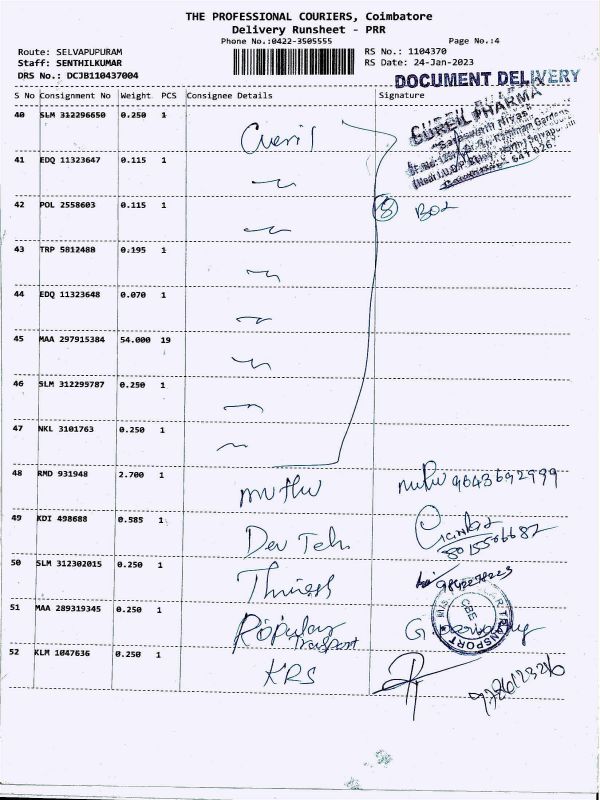 THE PROFESSIONAL COURIERS, Coimbatore
Delivery Runsheet - PRR
Phone No.:0422-3505555
Page No.:4
Route: SELVAPUPURAM
RS No.: 1104370
Staff: SENTHILKUMAR
RS Date: 24-Jan-2023
DRS No.: DCJB110437004
DOCUMENT DELIVERY
S No Consignment No Weight PCS Consignee Details Signature
40 SLM 312296650 0.250 1
CUREIL PHARMA
41 EDQ 11323647 0.115 1
42 POL 2558603 0.115 1
8 BOX
43 TRP 5812480 0.195 1
44 EDQ 11323648 0.070 1
45 MAA 297915384 54.000 19
46 SLM 312299787 0.250 1
47 NKL 3101763 0.250 1
48 RMD 931948 2.700 1 muthu 9643692999
49 KDI 498688 0.585 1 Dev Teh
50 SLM 312302015 0.250 1
51 MAA 289319345 0.250 1 Popular Transport
TRANSPORT
CBE
52 KLM 1047636 0.250 1 KRS